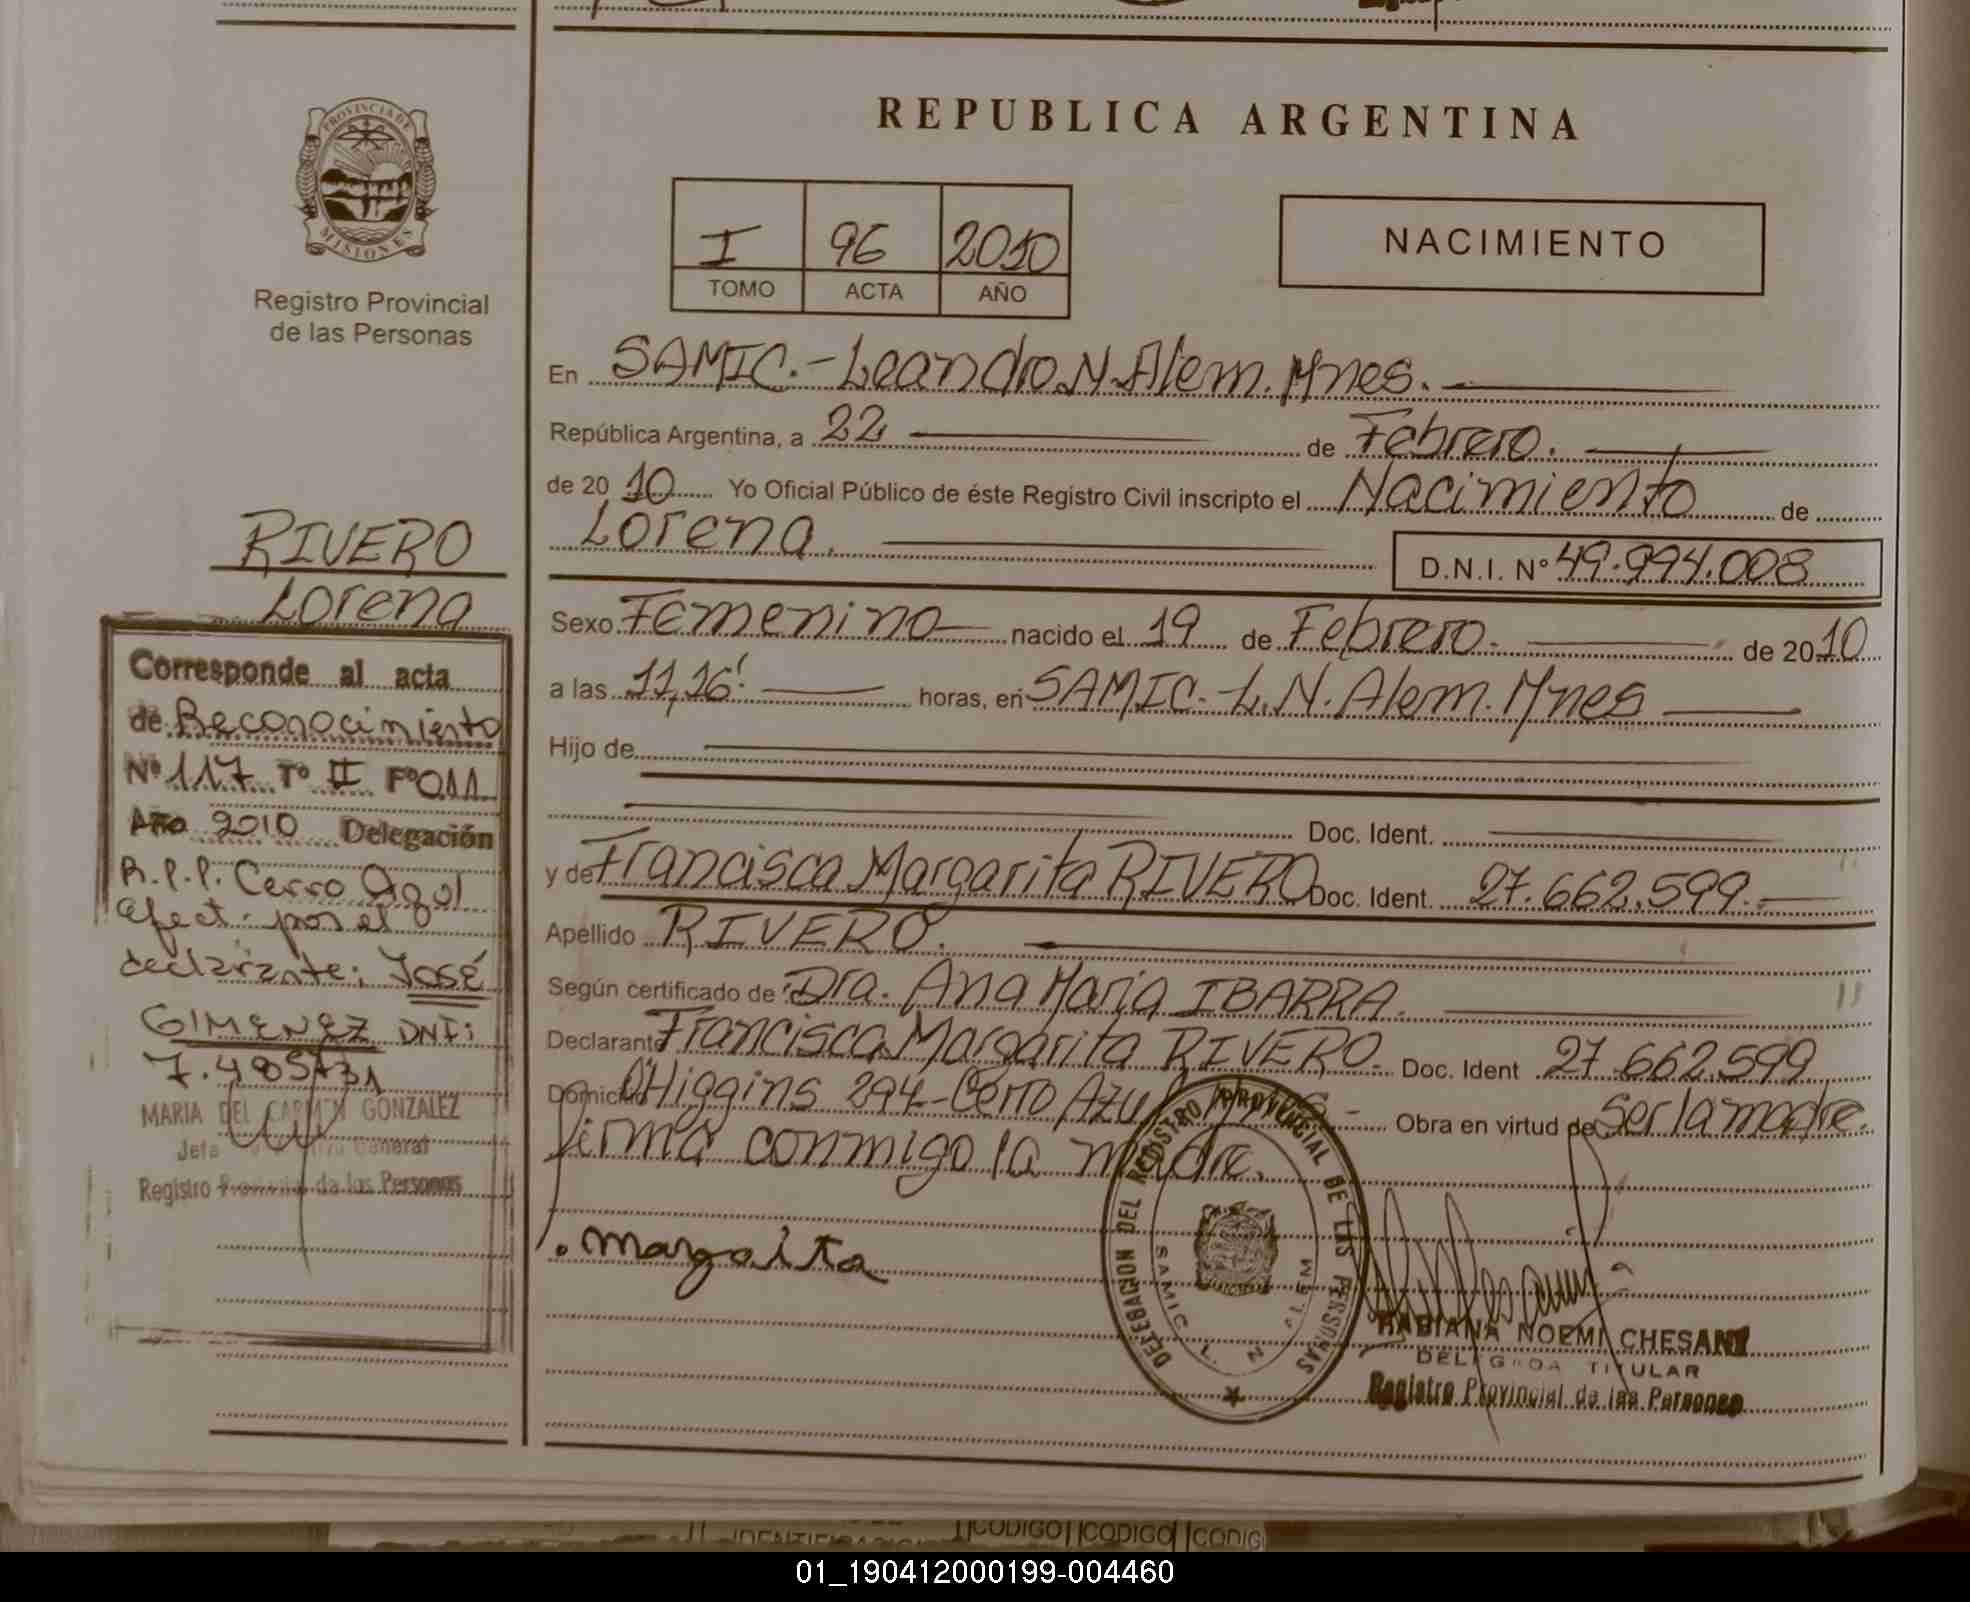 REPUBLICA ARGENTINA
PROVINCIA DE
MISIONES
Registro Provincial
de las Personas
I 96 2010
TOMO ACTA AÑO
NACIMIENTO
En SAMIC.-Leandro.N.Alem.Mnes.
República Argentina, a 22 de Febrero.
de 20 10 Yo Oficial Público de éste Registro Civil inscripto el Nacimiento de
Lorena. D.N.I. Nº 49.994.008
Sexo Femenino nacido el 19 de Febrero. de 20 10
a las 11,16' horas, en SAMIC. L.N.Alem.Mnes
Hijo de
Doc. Ident.
y de Francisca Margarita RIVERO Doc. Ident. 27.662.599.
Apellido RIVERO.
Según certificado de Dra. Ana Maria IBARRA.
Declarante Francisca Margarita RIVERO. Doc. Ident 27.662.599
Domicilio O'Higgins 294-Cerro Azul Obra en virtud de Ser la madre.
firma conmigo la madre.
Margaita
DELEGACION DEL REGISTRO PROVINCIAL DE LAS PERSONAS
SAMIC L. N. ALEM
FABIANA NOEMI CHESANY
DELEGADA TITULAR
Registro Provincial de las Personas
RIVERO
Lorena
Corresponde al acta
de Reconocimiento
Nº 117 Tº II Fº 011
Año 2010 Delegación
R.P.P. Cerro Azul
efect. por el
declarante: José
GIMENEZ DNI:
7.485731
MARIA DEL CARMEN GONZALEZ
General
Registro Provincial de las Personas
CODIGO CODIGO CODIG
01_190412000199-004460